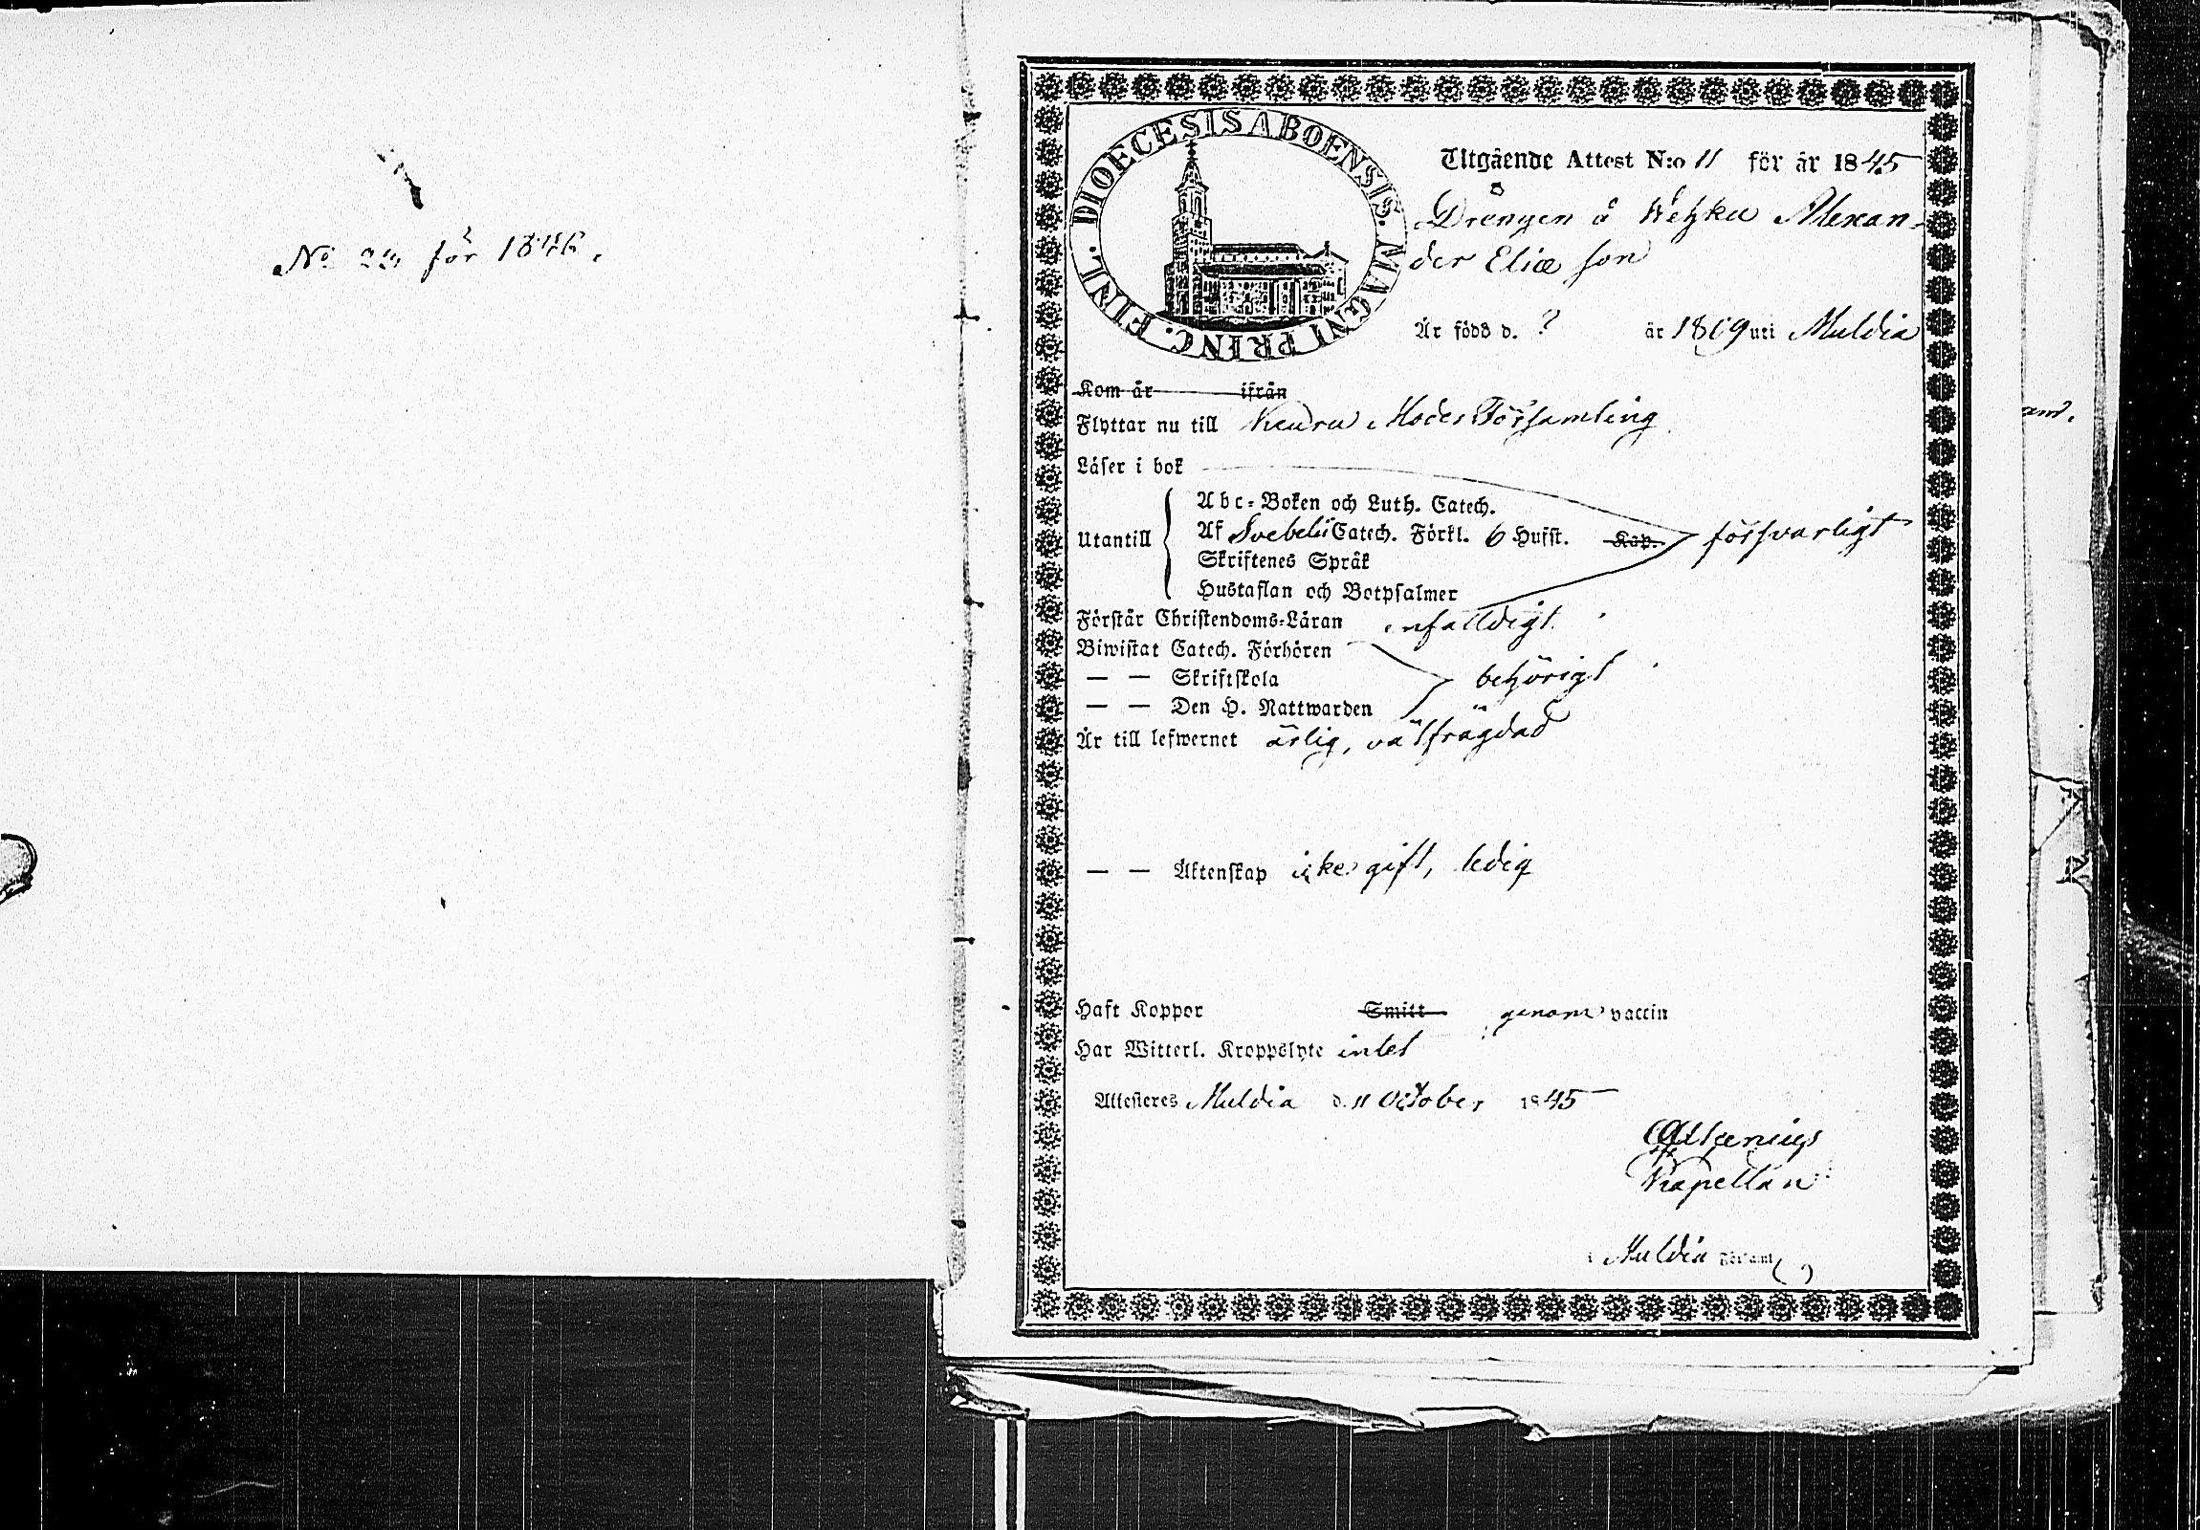 No 23 för 1846.
DIOECESIS ABOENSIS. MAGNI PRINC. FINL.
Utgående Attest N:o 11 för år 1845
Drängen å Wehku Alexan-
der Eliæ son
Är född d. ? år 1819 uti Muldia
Kom år ifrån
Flyttar nu till Keuru Moder Församling
Läser i bok
Abc-Boken och Luth. Catech.
Utantill Af Svebelii Catech. Förkl. 6 Hufst. Kap. försvarligt
Skriftenes Språk
Hustaflan och Botpsalmer
Förstår Christendoms-Läran enfaldigt.
Biwistat Catech. Förhören
— — Skriftskola behörigt
— — Den H. Nattwarden
Är till lefwernet ärlig, välfrägdad
— — Äktenskap icke gift, ledig
Haft Koppor Smitt genom vaccin
Har Witterl. Kroppslyte intet
Attesteres Muldia d. 11 October 1845
Kapellan
i Muldia Församl.